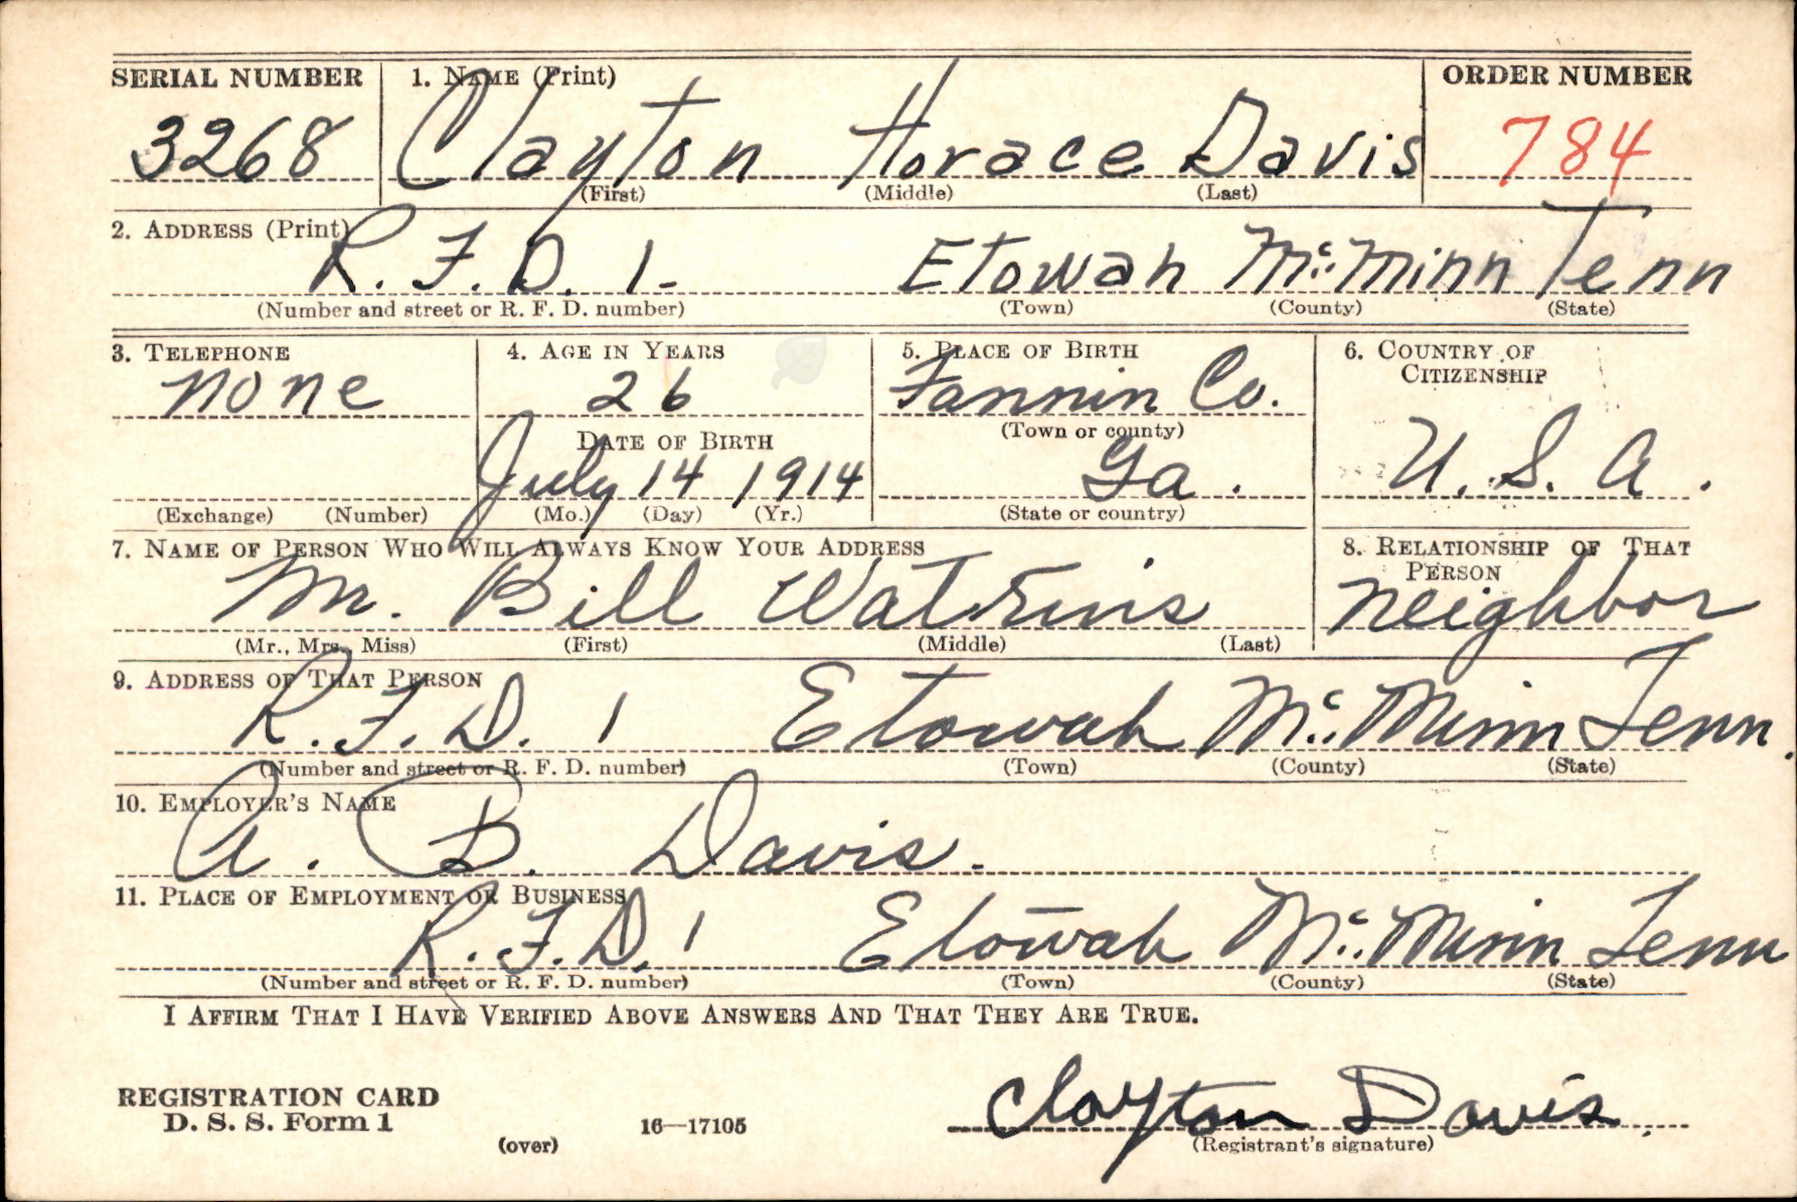 SERIAL NUMBER 1. NAME (Print) ORDER NUMBER
3268 Clayton Horace Davis 784
(First) (Middle) (Last)
2. ADDRESS (Print)
R. F. D. 1- Etowah Mc.Minn Tenn
(Number and street or R. F. D. number) (Town) (County) (State)
3. TELEPHONE 4. AGE IN YEARS 5. PLACE OF BIRTH 6. COUNTRY OF CITIZENSHIP
none 26 Fannin Co.
DATE OF BIRTH (Town or county)
July 14 1914 Ga. U. S. A.
(Exchange) (Number) (Mo.) (Day) (Yr.) (State or country)
7. NAME OF PERSON WHO WILL ALWAYS KNOW YOUR ADDRESS 8. RELATIONSHIP OF THAT PERSON
Mr. Bill Watkins neighbor
(Mr., Mrs., Miss) (First) (Middle) (Last)
9. ADDRESS OF THAT PERSON
R. F. D. 1 Etowah Mc.Minn Tenn.
(Number and street or R. F. D. number) (Town) (County) (State)
10. EMPLOYER'S NAME
A. B. Davis.
11. PLACE OF EMPLOYMENT OR BUSINESS
R. F. D. 1 Etowah Mc.Minn Tenn
(Number and street or R. F. D. number) (Town) (County) (State)
I AFFIRM THAT I HAVE VERIFIED ABOVE ANSWERS AND THAT THEY ARE TRUE.
Clayton Davis.
REGISTRATION CARD
D. S. S. Form 1
(over) 16—17105 (Registrant's signature)